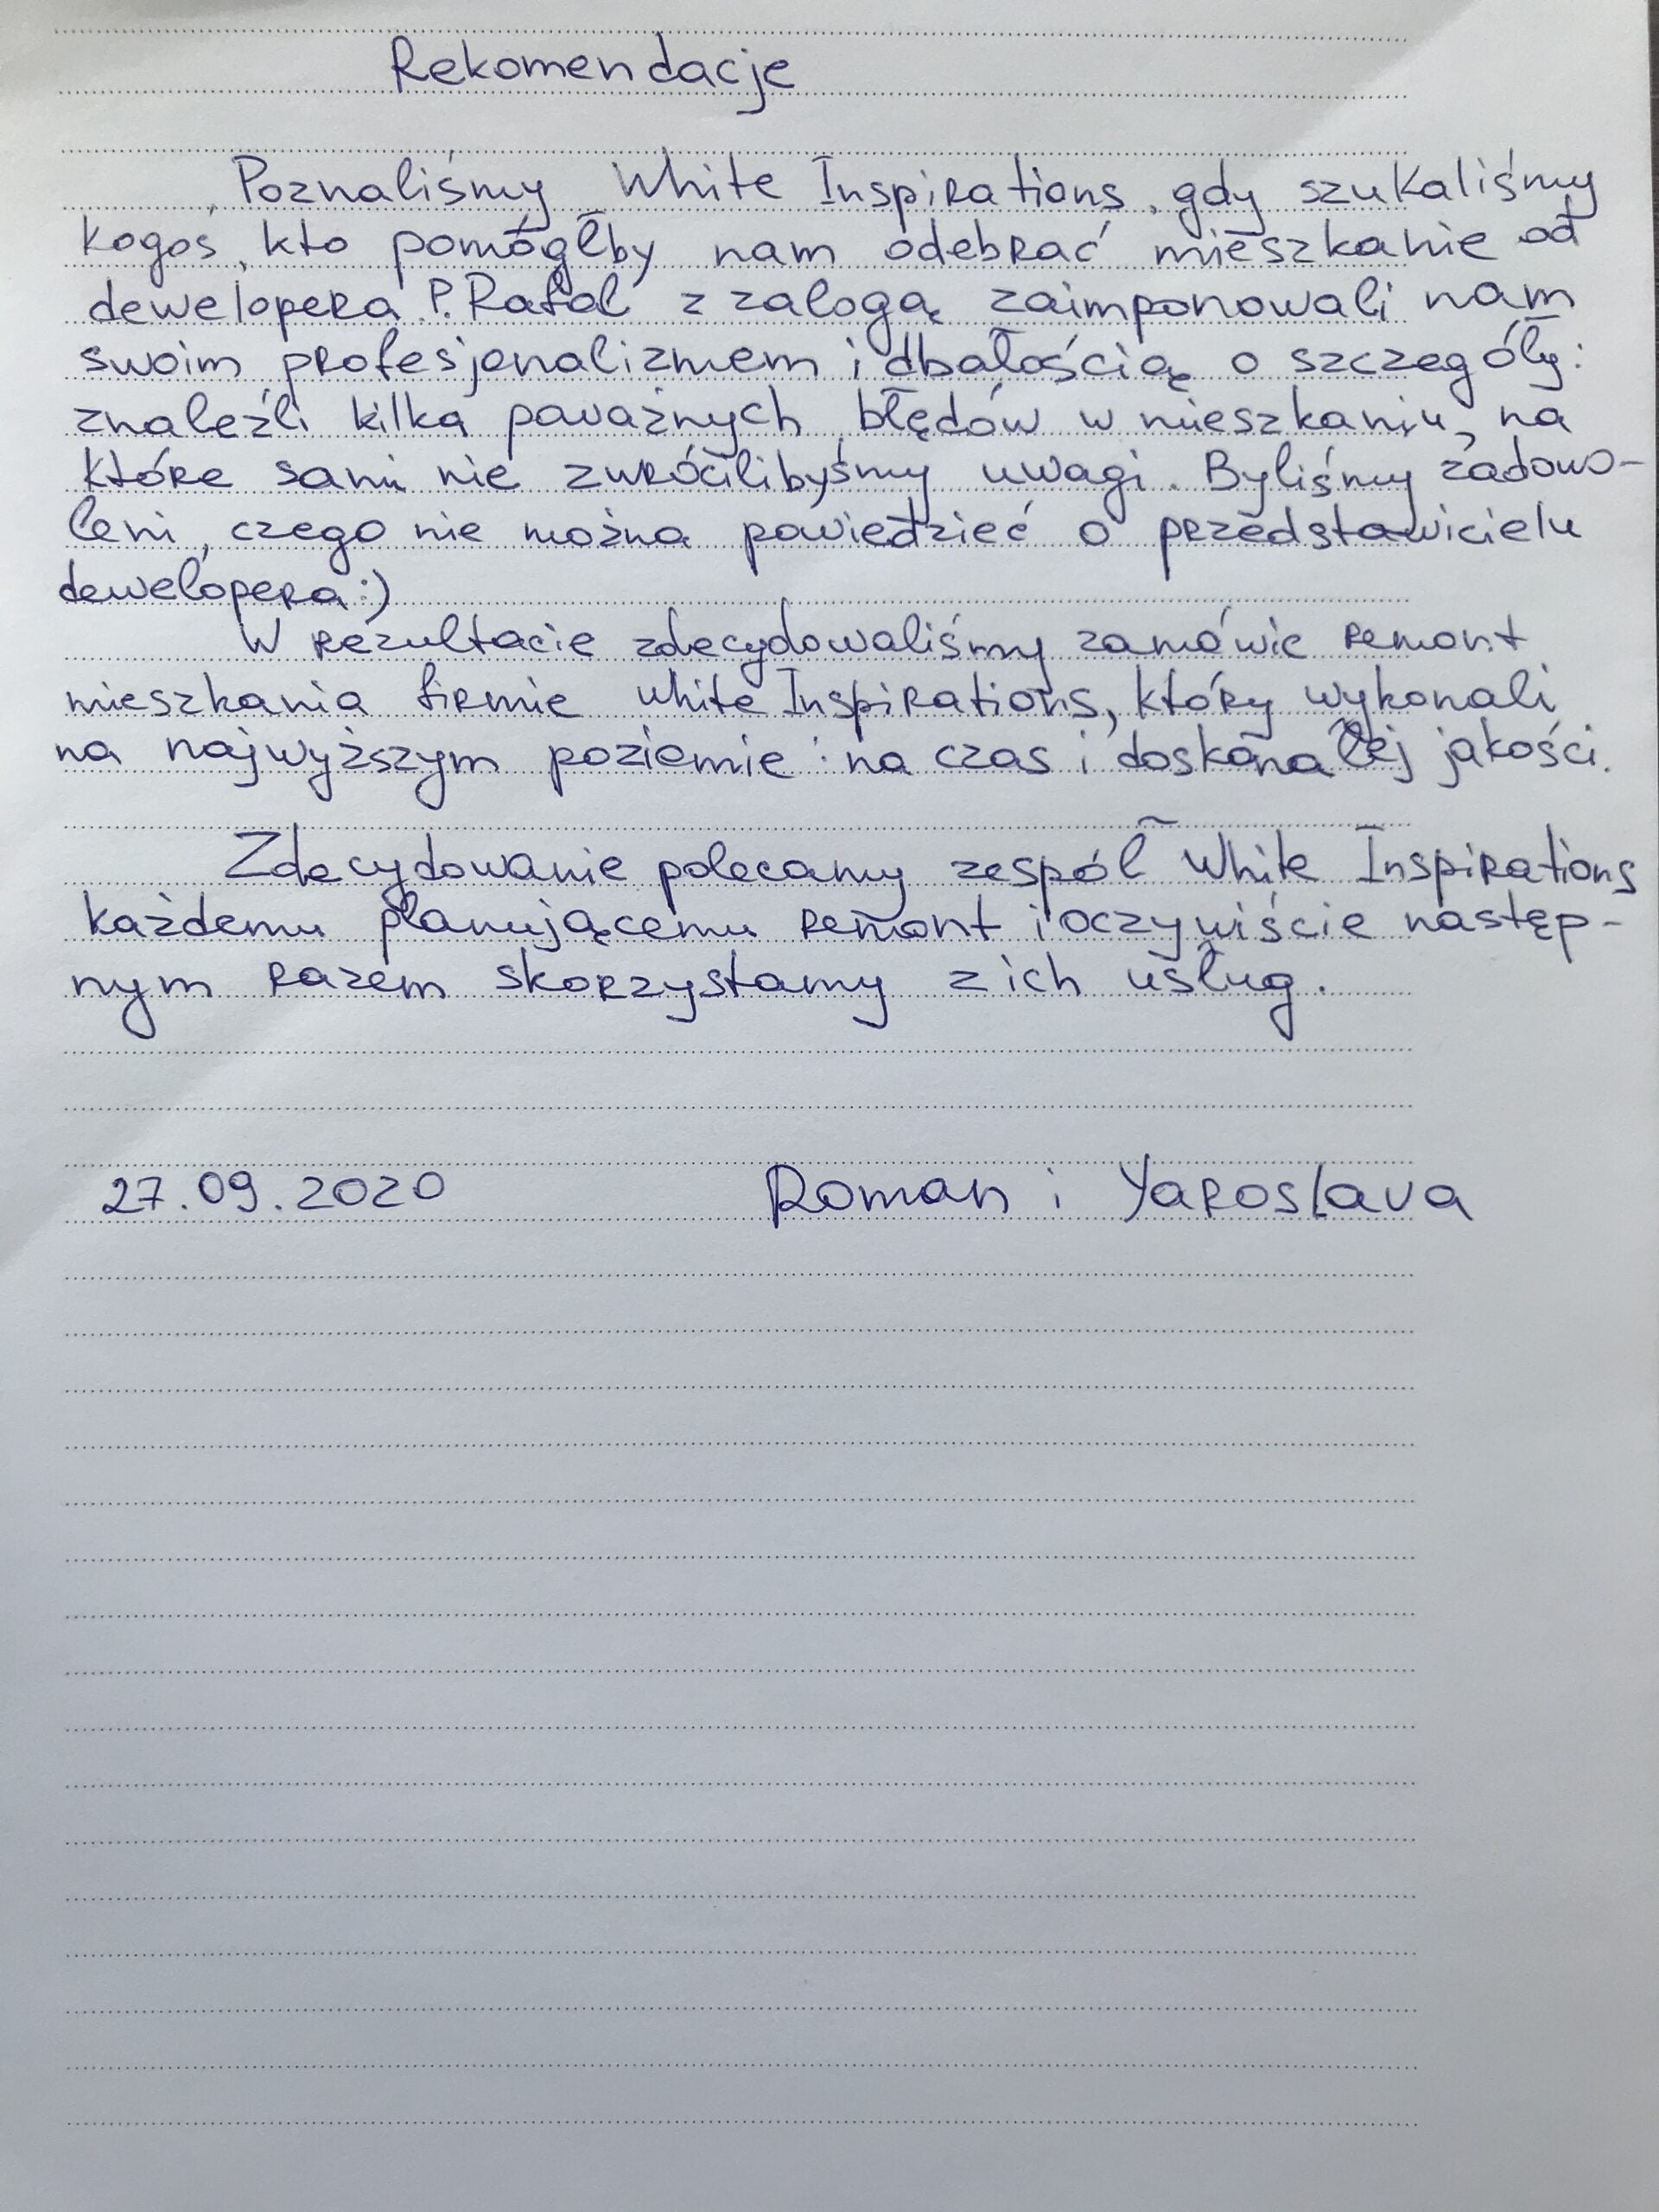 Rekomendacje
Poznaliśmy White Inspirations, gdy szukaliśmy
kogoś, kto pomógłby nam odebrać mieszkanie od
dewelopera. P. Rafał z załogą zaimponowali nam
swoim profesjonalizmem i dbałością o szczegóły:
znaleźli kilka poważnych błędów w mieszkaniu, na
które sami nie zwrócilibyśmy uwagi. Byliśmy zadowo-
leni, czego nie można powiedzieć o przedstawicielu
dewelopera :)
W rezultacie zdecydowaliśmy zamówic remont
mieszkania firmie White Inspirations, który wykonali
na najwyższym poziemie : na czas i doskonałej jakości.
Zdecydowanie polecamy zespół White Inspirations
każdemu planującemu remont i oczywiście następ-
nym razem skorzystamy z ich usług.
27.09.2020 Roman i Yaroslava